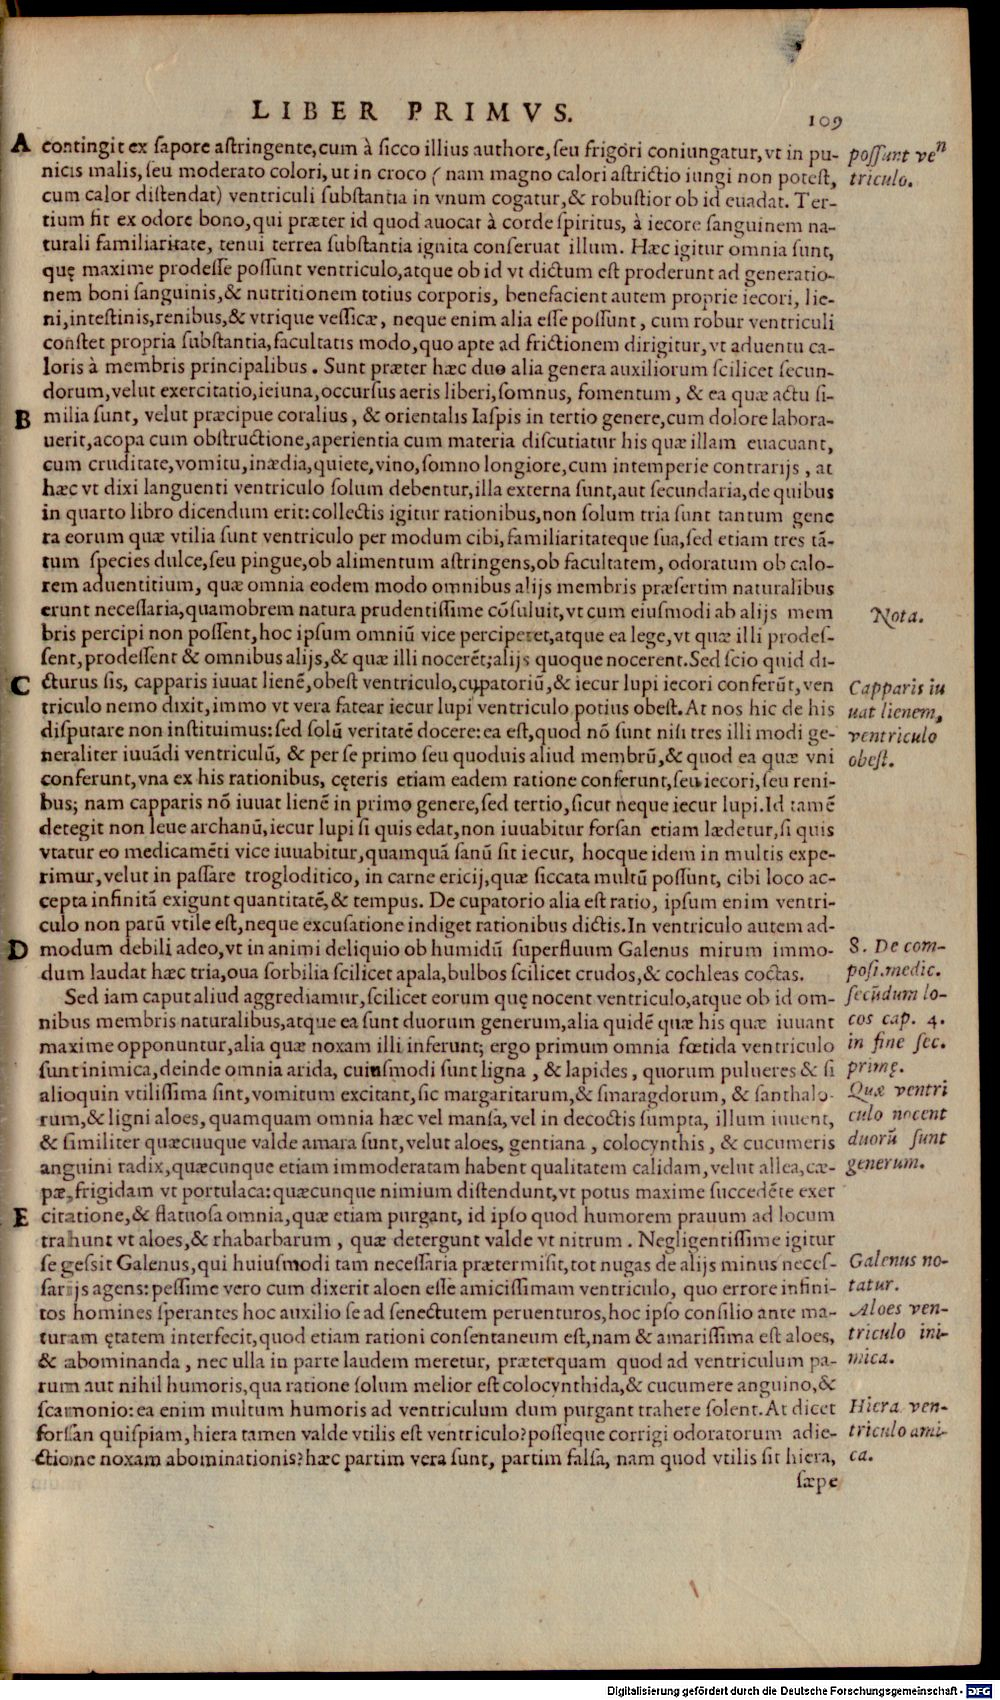 LIBER PRIMVS.
109
A
contingit ex sapore astringente,cum à sicco illius authore,seu frigori coniungatur,vt in pu-
nicis malis, seu moderato colori, ut in croco ( nam magno calori astrictio iungi non potest,
cum calor distendat) ventriculi substantia in vnum cogatur,& robustior ob id euadat. Ter-
tium fit ex odore bono,qui præter id quod auocat à corde spiritus, à iecore sanguinem na-
turali familiaritate, tenui terrea substantia ignita conseruat illum. Hæc igitur omnia sunt,
quę maxime prodesse possunt ventriculo,atque ob id vt dictum est proderunt ad generatio-
nem boni sanguinis,& nutritionem totius corporis, benefacient autem proprie iecori, lie-
ni,intestinis,renibus,& vtrique vessicæ, neque enim alia esse possunt, cum robur ventriculi
constet propria substantia,facultatis modo,quo apte ad frictionem dirigitur,vt aduentu ca-
loris à membris principalibus. Sunt præter hæc duo alia genera auxiliorum scilicet secun-
dorum,velut exercitatio,ieiuna,occursus aeris liberi,somnus, fomentum, & ea quæ actu si-
B
milia sunt, velut præcipue coralius, & orientalis Iaspis in tertio genere,cum dolore labora-
uerit,acopa cum obstructione,aperientia cum materia discutiatur his quæ illam euacuant,
cum cruditate,vomitu,inædia,quiete,vino,somno longiore,cum intemperie contrarijs, at
hæc vt dixi languenti ventriculo solum debentur,illa externa sunt,aut secundaria,de quibus
in quarto libro dicendum erit:collectis igitur rationibus,non solum tria sunt tantum gene
ra eorum quæ vtilia sunt ventriculo per modum cibi,familiaritateque sua,sed etiam tres tā-
tum species dulce,seu pingue,ob alimentum astringens,ob facultatem, odoratum ob calo-
rem aduentitium, quæ omnia eodem modo omnibus alijs membris præsertim naturalibus
erunt necessaria,quamobrem natura prudentissime cōsuluit,vt cum eiusmodi ab alijs mem
bris percipi non possent,hoc ipsum omniū vice perciperet,atque ea lege,vt quæ illi prodes-
sent,prodessent & omnibus alijs,& quæ illi nocerēt;alijs quoque nocerent.Sed scio quid di-
C
cturus sis, capparis iuuat lienē,obest ventriculo,cupatoriū,& iecur lupi iecori conferūt,ven
triculo nemo dixit,immo vt vera fatear iecur lupi ventriculo potius obest.At nos hic de his
disputare non instituimus:sed solū veritatē docere:ea est,quod nō sunt nisi tres illi modi ge-
neraliter iuuādi ventriculū, & per se primo seu quoduis aliud membrū,& quod ea quæ vni
conferunt,vna ex his rationibus, cęteris etiam eadem ratione conferunt,seu iecori,seu reni-
bus; nam capparis nō iuuat lienē in primo genere,sed tertio,sicut neque iecur lupi.Id tamē
detegit non leue archanū,iecur lupi si quis edat,non iuuabitur forsan etiam lædetur,si quis
vtatur eo medicamēti vice iuuabitur,quamquā sanū sit iecur, hocque idem in multis expe-
rimur,velut in passare trogloditico, in carne ericij,quæ siccata multū possunt, cibi loco ac-
cepta infinitā exigunt quantitatē,& tempus. De cupatorio alia est ratio, ipsum enim ventri-
culo non parū vtile est,neque excusatione indiget rationibus dictis.In ventriculo autem ad-
D
modum debili adeo,vt in animi deliquio ob humidū superfluum Galenus mirum immo-
dum laudat hæc tria,oua sorbilia scilicet apala,bulbos scilicet crudos,& cochleas coctas.
Sed iam caput aliud aggrediamur,scilicet eorum quę nocent ventriculo,atque ob id om-
nibus membris naturalibus,atque ea sunt duorum generum,alia quidē quæ his quæ iuuant
maxime opponuntur,alia quæ noxam illi inferunt; ergo primum omnia fœtida ventriculo
sunt inimica,deinde omnia arida, cuiusmodi sunt ligna, & lapides, quorum pulueres & si
alioquin vtilissima sint,vomitum excitant,sic margaritarum,& smaragdorum, & santhalo-
rum,& ligni aloes, quamquam omnia hæc vel mansa, vel in decoctis sumpta, illum iuuent,
& similiter quæcuuque valde amara sunt,velut aloes, gentiana, colocynthis, & cucumeris
anguini radix,quæcunque etiam immoderatam habent qualitatem calidam,velut allea,cæ-
pæ,frigidam vt portulaca:quæcunque nimium distendunt,vt potus maxime succedēte exer
E
citatione,& flatuosa omnia,quæ etiam purgant, id ipso quod humorem prauum ad locum
trahunt vt aloes,& rhabarbarum, quæ detergunt valde vt nitrum. Negligentissime igitur
se gessit Galenus,qui huiusmodi tam necessaria prætermisit,tot nugas de alijs minus neces-
sarijs agens:pessime vero cum dixerit aloen esse amicissimam ventriculo, quo errore infini-
tos homines sperantes hoc auxilio se ad senectutem peruenturos,hoc ipso consilio ante ma-
turam ętatem interfecit,quod etiam rationi consentaneum est,nam & amarissima est aloes,
& abominanda, nec ulla in parte laudem meretur, præterquam quod ad ventriculum pa-
rum aut nihil humoris,qua ratione solum melior est colocynthida,& cucumere anguino,&
scamonio:ea enim multum humoris ad ventriculum dum purgant trahere solent.At dicet
forsan quispiam,hiera tamen valde vtilis est ventriculo?posseque corrigi odoratorum adie-
ctione noxam abominationis?hæc partim vera sunt, partim falsa, nam quod vtilis sit hiera,
sæpe
possunt ven
triculo.
Nota.
Capparis iu
uat lienem,
ventriculo
obest.
8. De com-
posi.medic.
secūdum lo-
cos cap. 4.
in fine sec.
primę.
Quæ ventri
culo nocent
duorū sunt
generum.
Galenus no-
tatur.
Aloes ven-
triculo ini-
mica.
Hiera ven-
triculo ami-
ca.
Digitalisierung gefördert durch die Deutsche Forschungsgemeinschaft - DFG